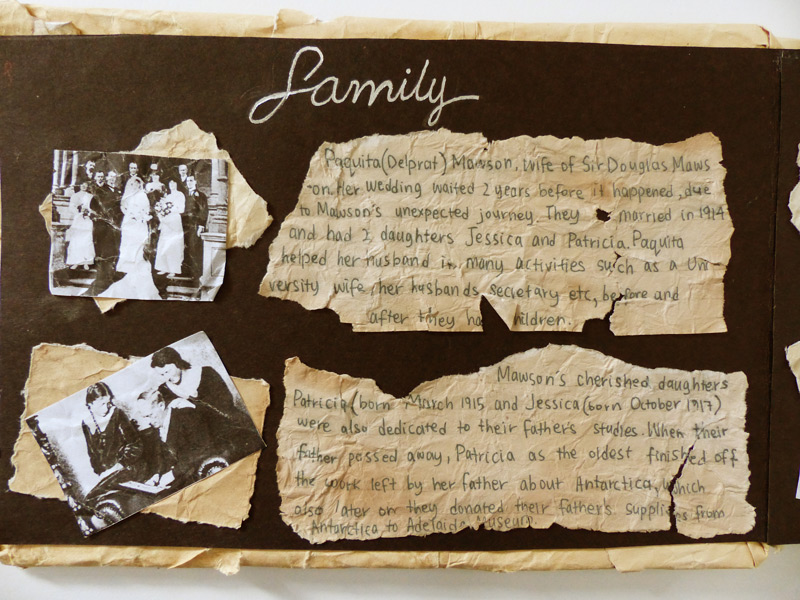 Family
Paquita (Delprat) Mawson, wife of Sir Douglas Maws
on. Her wedding waited 2 years before it happened, due
to Mawson's unexpected journey. They married in 1914
and had 2 daughters Jessica and Patricia. Paquita
helped her husband in many activities such as a Uni
versity wife, her husbands secretary etc, before and
after they had children.
Mawson's cherished daughters
Patricia (born March 1915 and Jessica (born October 1917)
were also dedicated to their father's studies. When their
father passed away, Patricia as the oldest finished off
the work left by her father about Antarctica, which
also later on they donated their father's supplies from
Antarctica to Adelaide Museum.